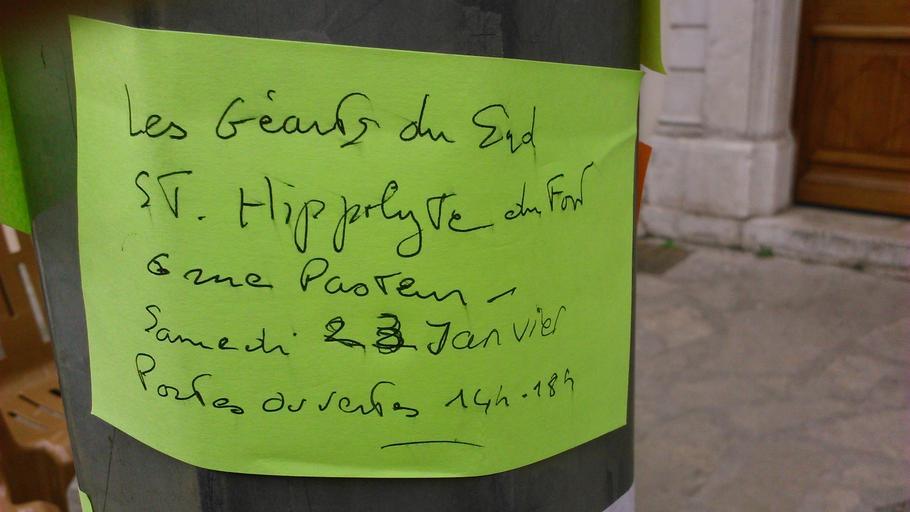 Les Géants du Sud
ST. Hippolyte du Fort
6 rue Pasteur -
Samedi 23 Janvier
Portes ouvertes 14h-18h